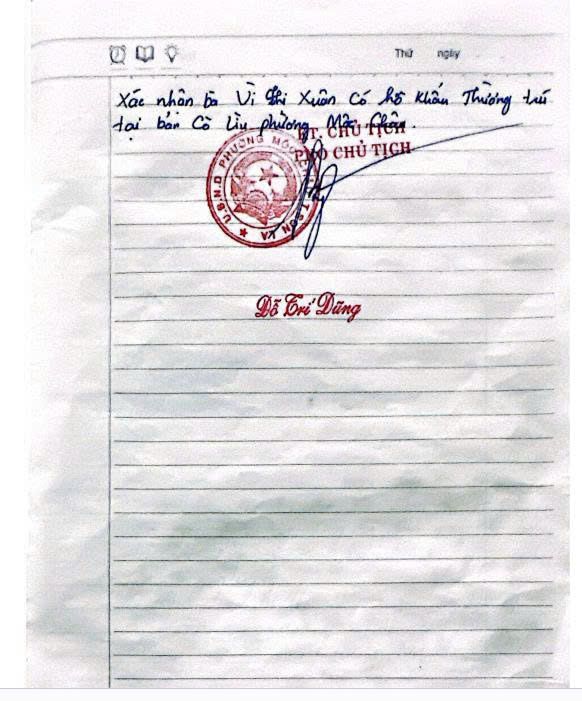 Thứ ngày
Xác nhận bà Vì Thị Xuân Có hộ khẩu Thường trú
tại bản Cò Liu phường Mộc Châu.
KT. CHỦ TỊCH
PHÓ CHỦ TỊCH
U.B.N.D PHƯỜNG MỘC CHÂU T.SƠN LA
Đỗ Trí Dũng